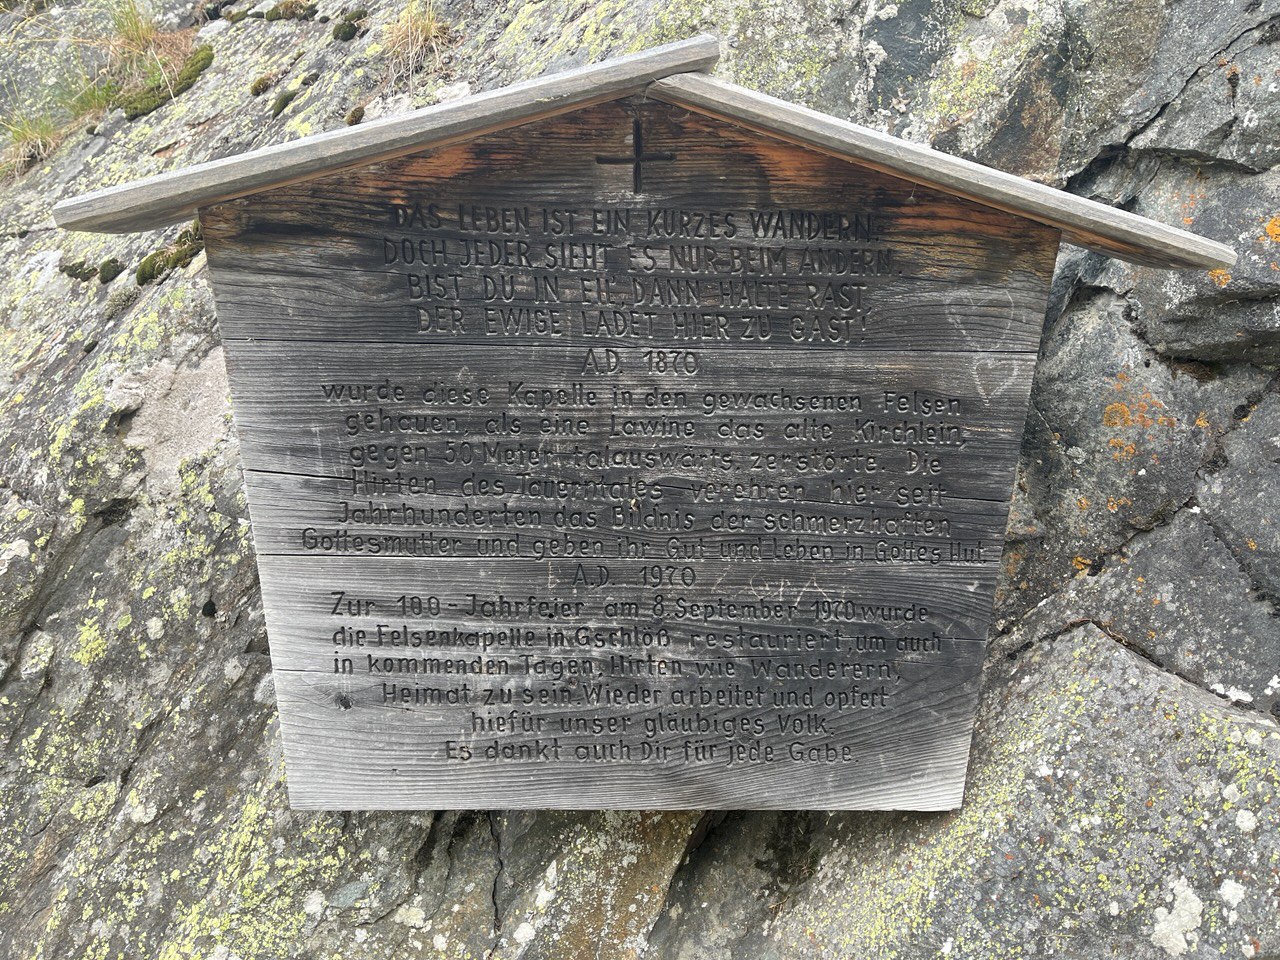 DAS LEBEN IST EIN KURZES WANDERN.
DOCH JEDER SIEHT ES NUR BEIM ANDERN.
BIST DU IN EIL', DANN HALTE RAST,
DER EWIGE LADET HIER ZU GAST!
A.D. 1870
wurde diese Kapelle in den gewachsenen Felsen
gehauen, als eine Lawine das alte Kirchlein,
gegen 50 Meter talauswärts, zerstörte. Die
Hirten des Tauerntales verehren hier seit
Jahrhunderten das Bildnis der schmerzhaften
Gottesmutter und geben ihr Gut und Leben in Gottes Hut.
A.D. 1970
Zur 100-Jahrfeier am 8.September 1970 wurde
die Felsenkapelle in Gschlöß restauriert, um auch
in kommenden Tagen, Hirten wie Wanderern,
Heimat zu sein. Wieder arbeitet und opfert
hiefür unser gläubiges Volk.
Es dankt auch Dir für jede Gabe.